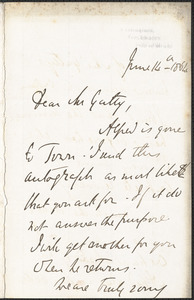 June 14th 1864
Dear Mr Gatty,
Alfred is gone
to Town. I send this
autograph as most likely
that you ask for. If it do
not answer the purpose
I will get another for you
when he returns.
We are truly sorry